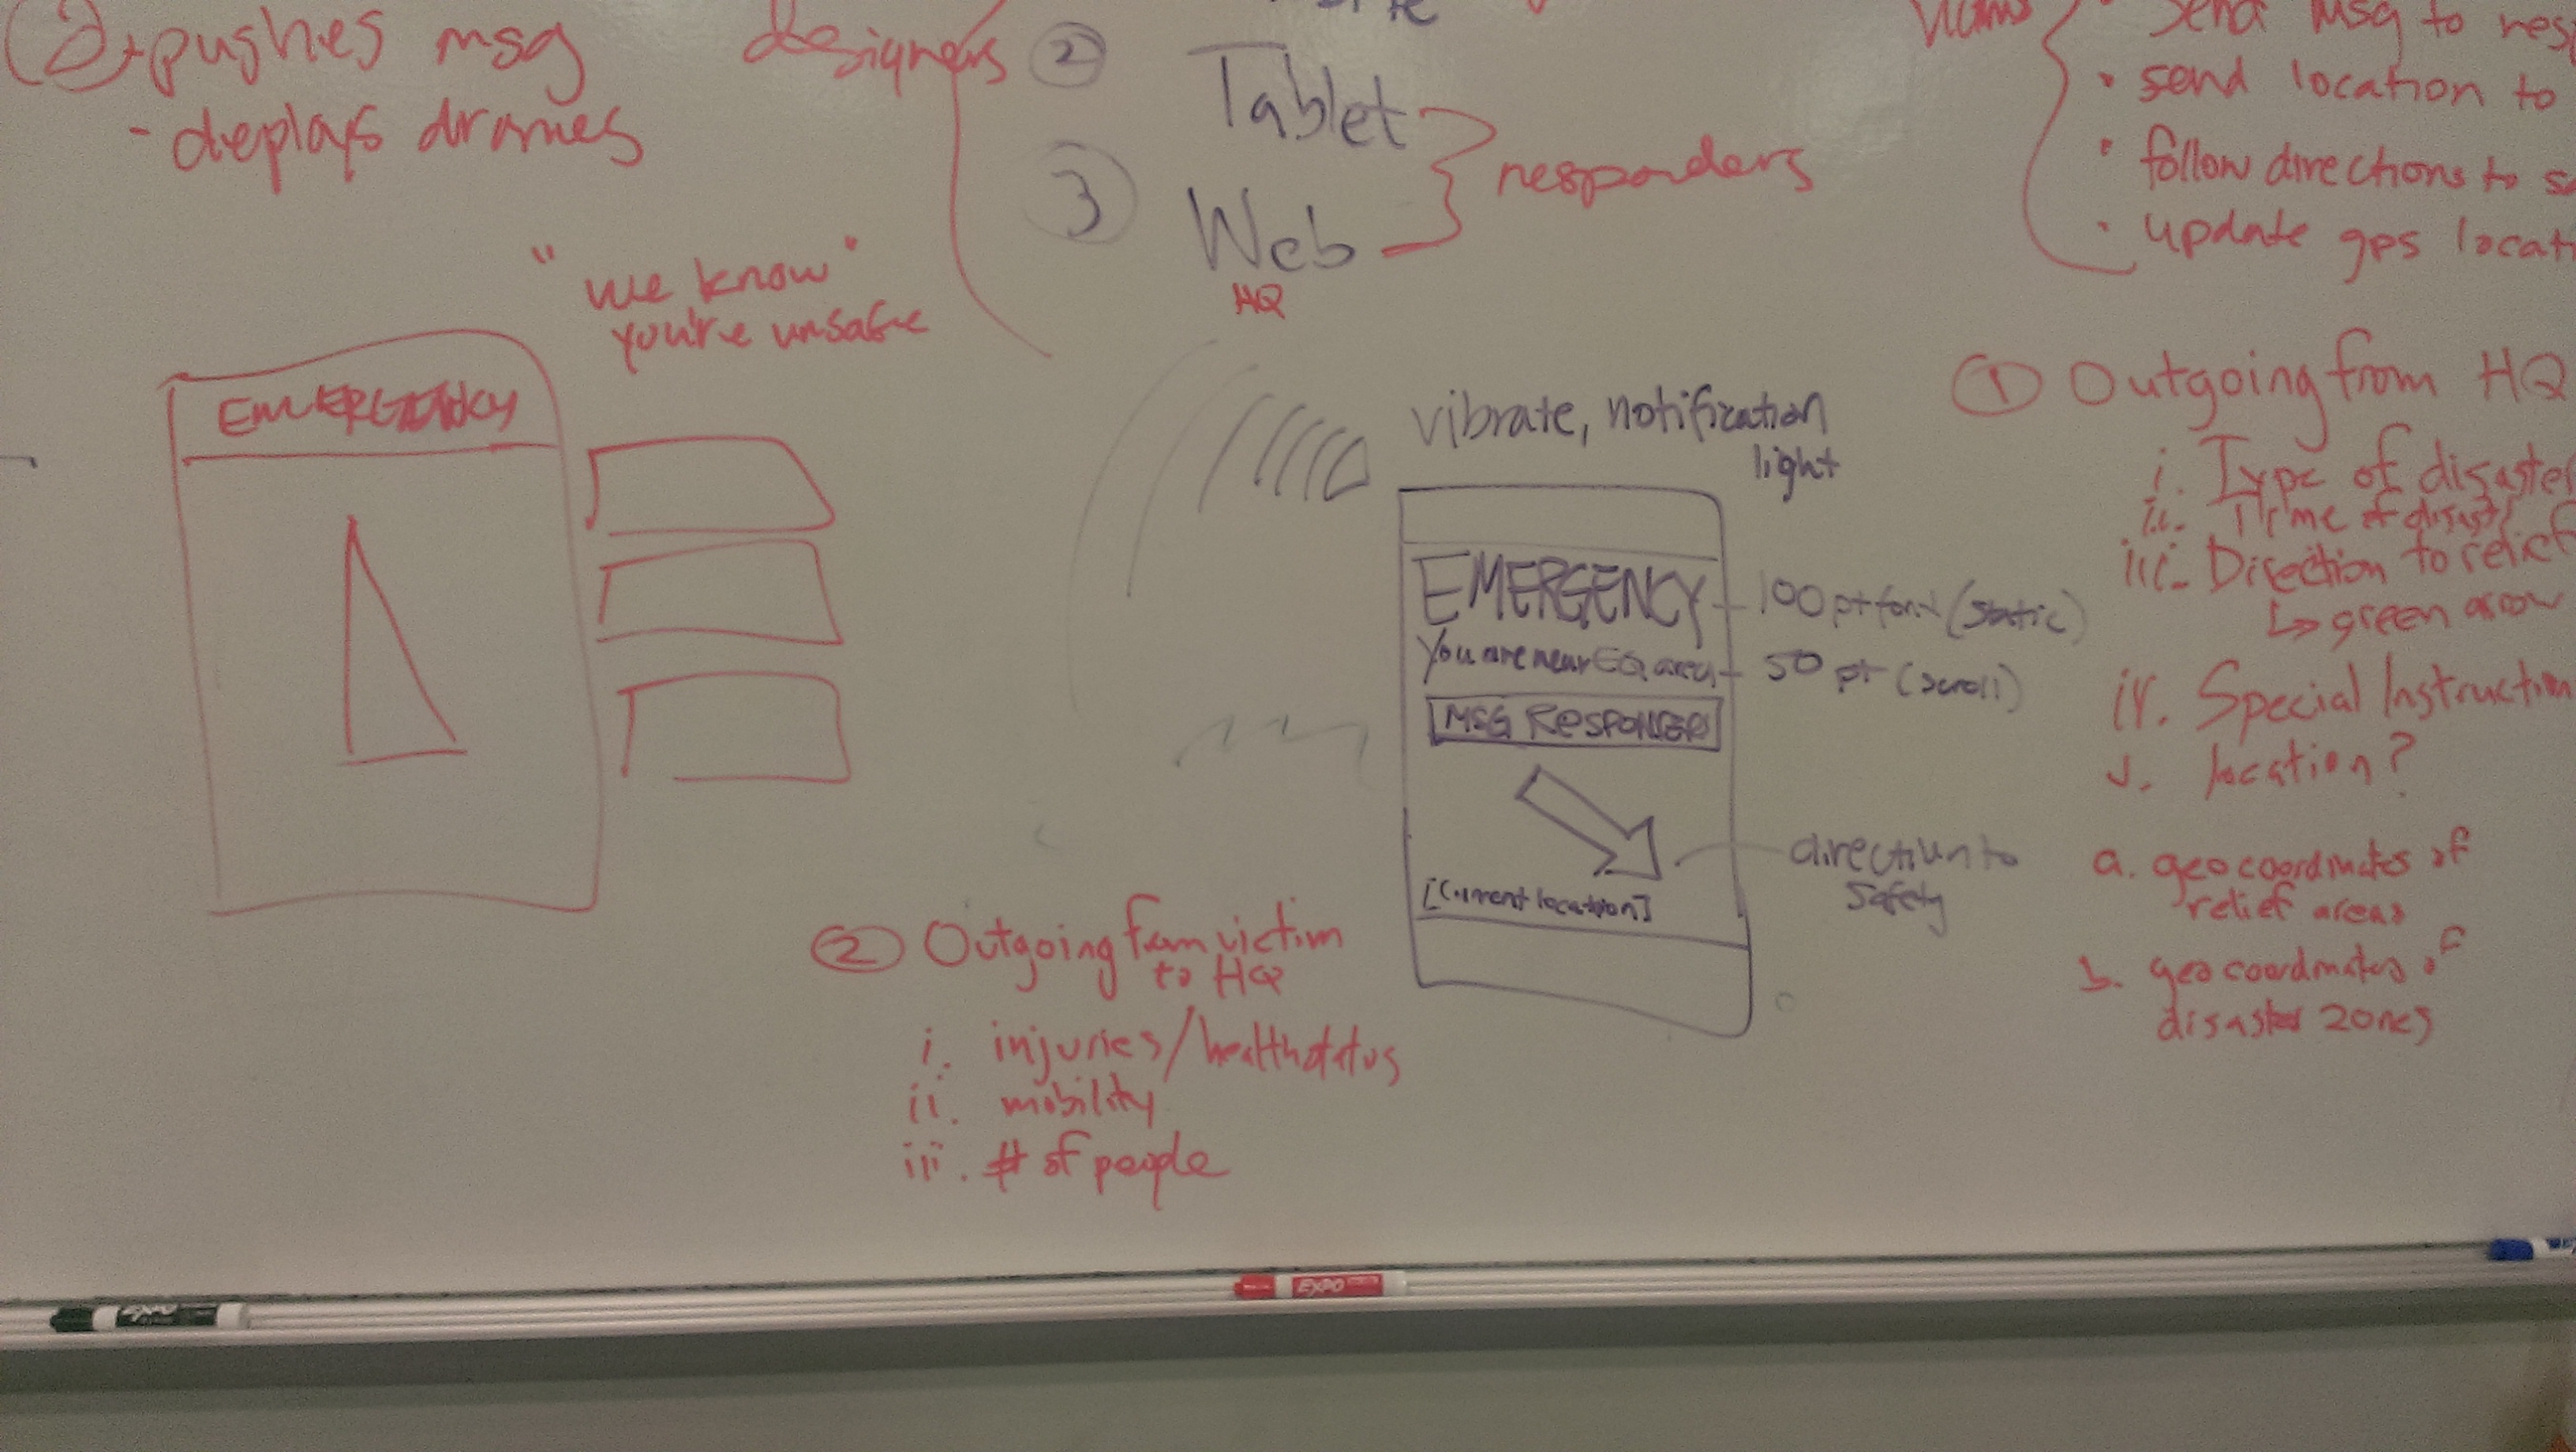 ② pushes msg
- deploys drones
designers
②
Tablet
③
Web
HQ
responders
send msg to
• send location to
• follow directions to
• update gps
"we know"
you're unsafe
EMERGENCY
vibrate, notification
light
EMERGENCY
100 pt font (static)
You are near EQ area
50 pt (scroll)
MSG RESPONDERS
direction to
safety
[Current location]
① Outgoing from HQ
i. Type of disaster
ii. Time of
iii. Direction to relief
↳ green arrow
iv. Special Instruction
v. location?
a. geo coordinates of
relief areas
b. geo coordinates of
disaster zones
② Outgoing from victim
to HQ
i. injuries/health status
ii. mobility
iii. # of people
EXPO
EXPO